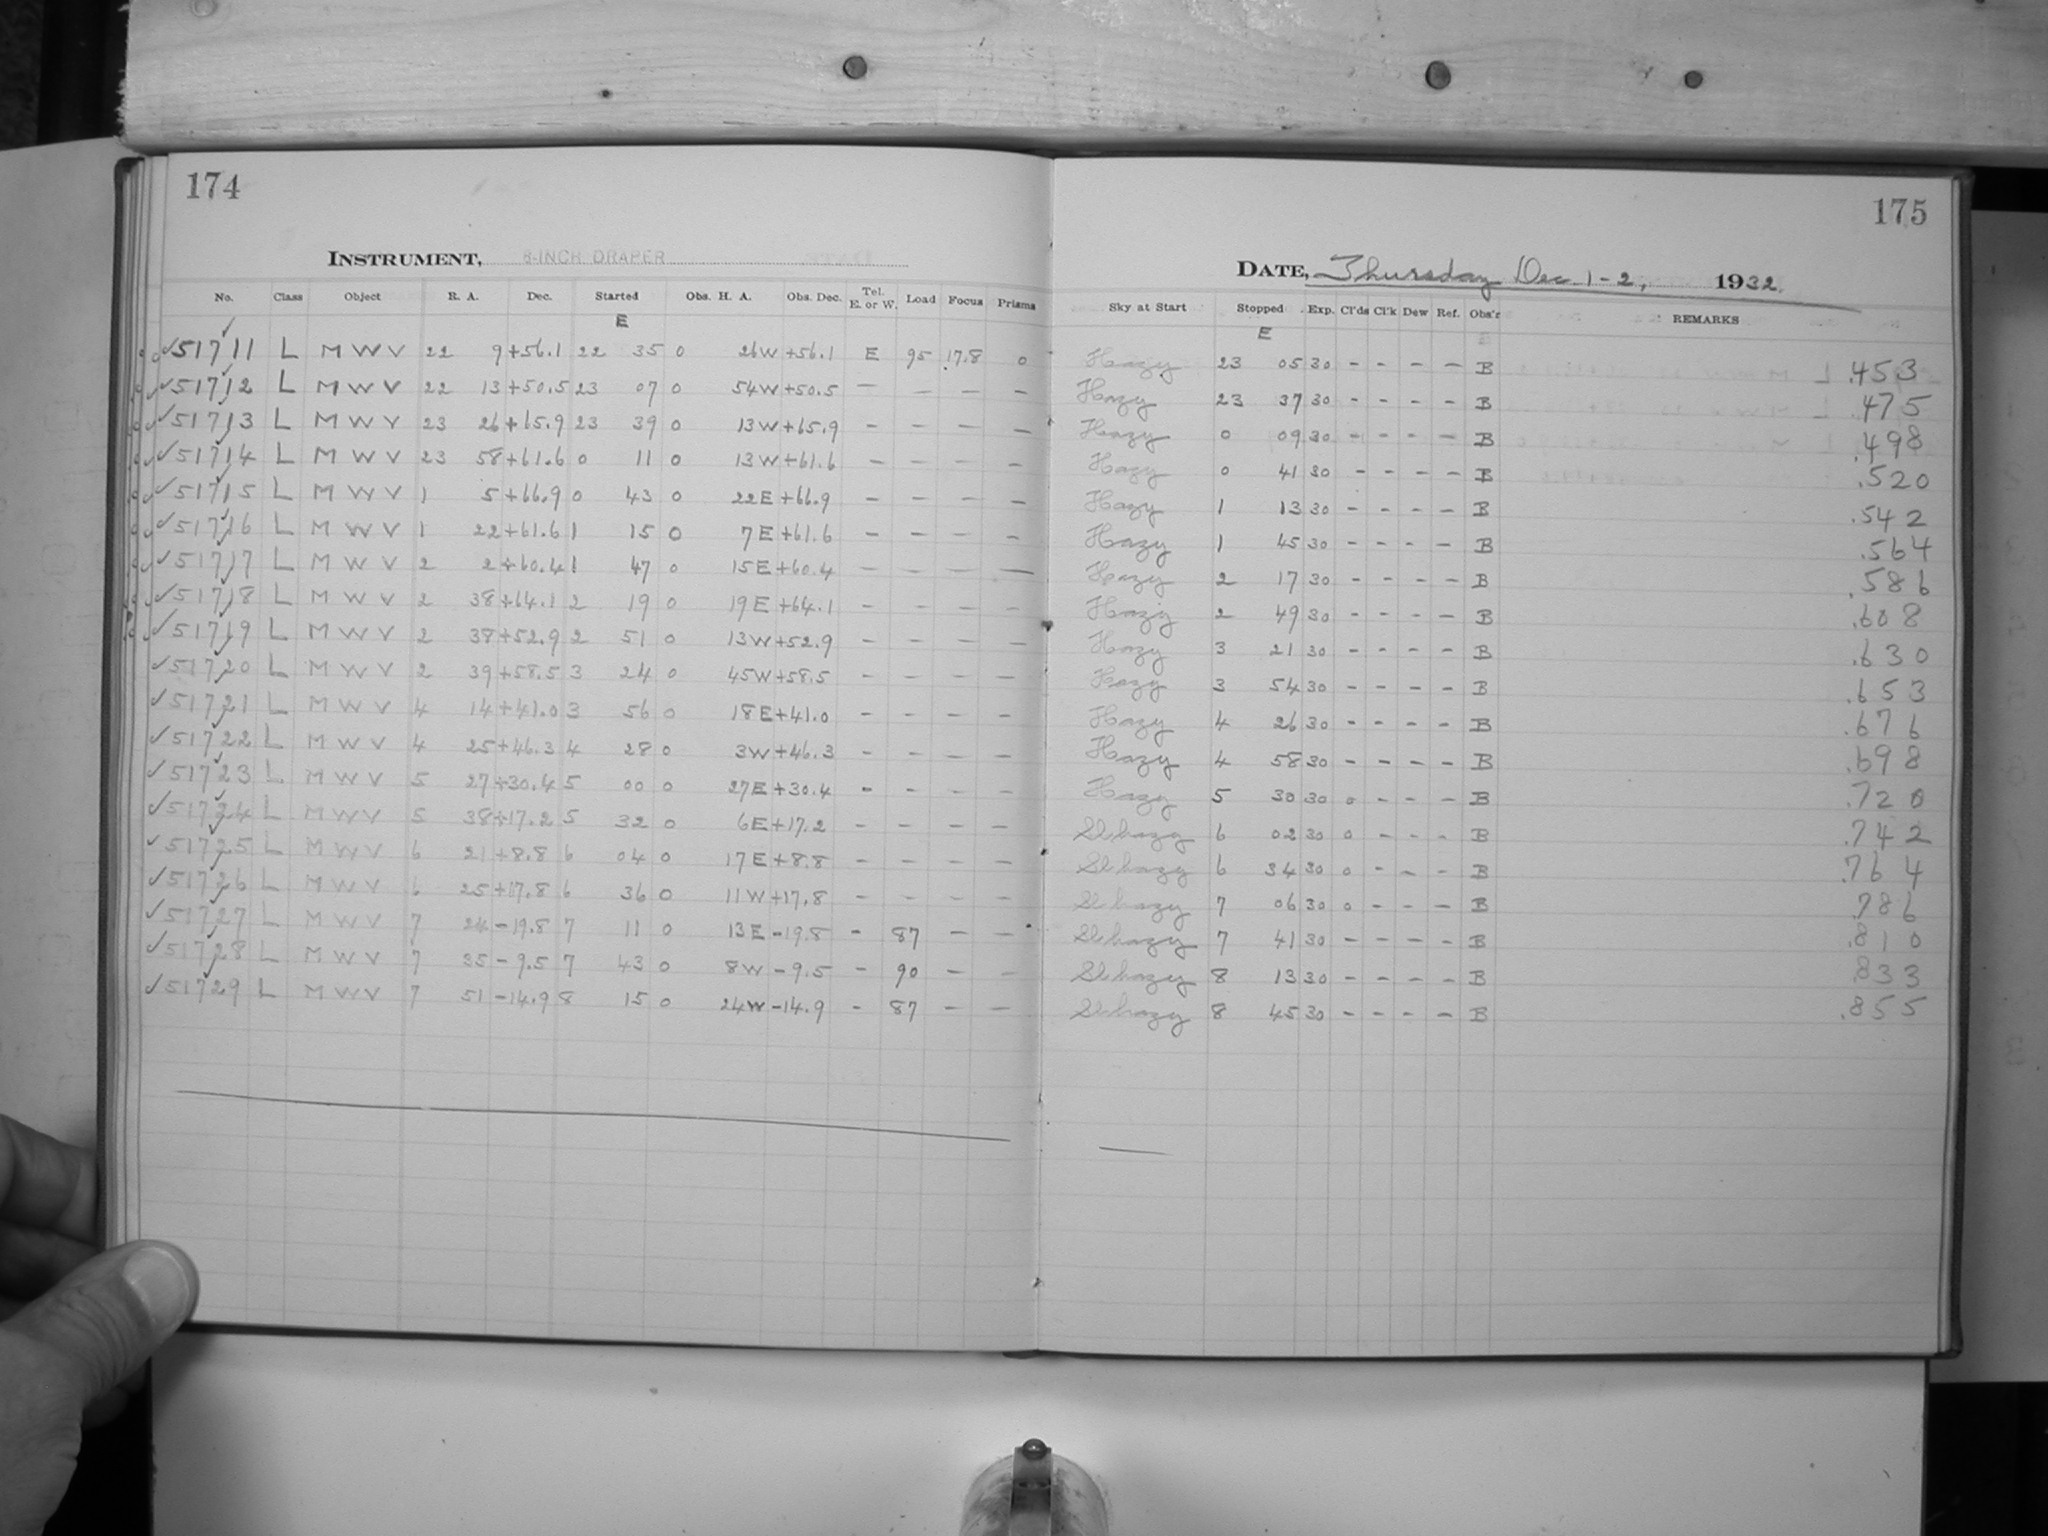 174
INSTRUMENT, 8-INCH DRAPER
No. Class Object R. A. Dec. Started Obs. H. A. Obs. Dec. Tel. E. or W. Load Focus Prisms
E
✓51711 L M W V 22 9 +56.1 22 35 0 26W +56.1 E 95 17.8 0
✓51712 L M W V 22 13 +50.5 23 07 0 54W +50.5 — — — —
✓51713 L M W V 23 26 +65.9 23 39 0 13W +65.9 — — — —
✓51714 L M W V 23 58 +61.6 0 11 0 13W +61.6 — — — —
✓51715 L M W V 1 5 +66.9 0 43 0 22E +66.9 — — — —
✓51716 L M W V 1 22 +61.6 1 15 0 7E +61.6 — — — —
✓51717 L M W V 2 2 +60.4 1 47 0 15E +60.4 — — — —
✓51718 L M W V 2 38 +64.1 2 19 0 19E +64.1 — — — —
✓51719 L M W V 2 38 +52.9 2 51 0 13W +52.9 — — — —
✓51720 L M W V 2 39 +58.5 3 24 0 45W +58.5 — — — —
✓51721 L M W V 4 14 +41.0 3 56 0 18E +41.0 — — — —
✓51722 L M W V 4 25 +46.3 4 28 0 3W +46.3 — — — —
✓51723 L M W V 5 27 +30.4 5 00 0 27E +30.4 — — — —
✓51724 L M W V 5 38 +17.2 5 32 0 6E +17.2 — — — —
✓51725 L M W V 6 21 +8.8 6 04 0 17E +8.8 — — — —
✓51726 L M W V 6 25 +17.8 6 36 0 11W +17.8 — — — —
✓51727 L M W V 7 24 -19.8 7 11 0 13E -19.8 — 87 — —
✓51728 L M W V 7 35 -9.5 7 43 0 8W -9.5 — 90 — —
✓51729 L M W V 7 51 -14.9 8 15 0 24W -14.9 — 87 — —
175
DATE, Thursday Dec. 1-2, 1932.
Sky at Start Stopped Exp. Cl'ds Cl'k Dew Ref. Obs'r REMARKS
E
Hazy 23 05 30 — — — — B .453
Hazy 23 37 30 — — — — B .475
Hazy 0 09 30 — — — — B .498
Hazy 0 41 30 — — — — B .520
Hazy 1 13 30 — — — — B .542
Hazy 1 45 30 — — — — B .564
Hazy 2 17 30 — — — — B .586
Hazy 2 49 30 — — — — B .608
Hazy 3 21 30 — — — — B .630
Hazy 3 54 30 — — — — B .653
Hazy 4 26 30 — — — — B .676
Hazy 4 58 30 — — — — B .698
Hazy 5 30 30 0 — — — B .720
Sl hazy 6 02 30 0 — — — B .742
Sl hazy 6 34 30 0 — — — B .764
Sl hazy 7 06 30 0 — — — B .786
Sl hazy 7 41 30 — — — — B .810
Sl hazy 8 13 30 — — — — B .833
Sl hazy 8 45 30 — — — — B .855